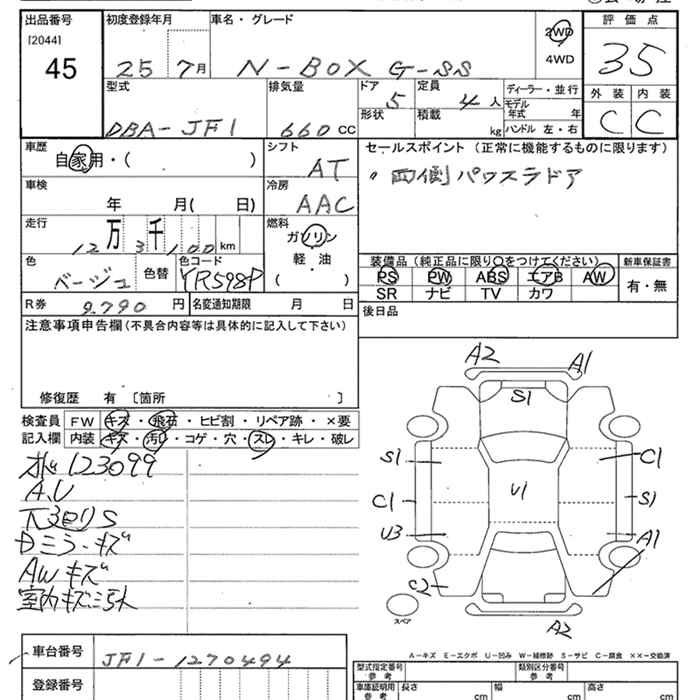 出品番号
[2044]
45
初度登録年月
25 7月
車名・グレード
N-BOX G-SS
2WD
4WD
評価点
35
外装 内装
C C
型式
DBA-JF1
排気量
660 CC
ドア
5
形状
定員
4 人
積載
kg
ディーラー・並行
モデル年式 年
ハンドル 左・右
車歴
自家用・( )
シフト
AT
セールスポイント (正常に機能するものに限ります)
〃両側パワスラドア
車検
年 月( 日)
冷房
AAC
走行
12万 3千 100 km
燃料
ガソリン
軽・油
( )
色
ベージュ
色替
色コード
YR598P
装備品 (純正品に限り〇をつけてください)
PS PW ABS エアB AW
SR ナビ TV カワ
新車保証書
有・無
R券
9.790 円
名変通知期限 月 日
後日品
注意事項申告欄(不具合内容等は具体的に記入して下さい)
修復歴 有 〔箇所 〕
検査員
記入欄
FW キズ・飛石・ヒビ割・リペア跡・×要
内装 キズ・汚レ・コゲ・穴・スレ・キレ・破レ
123099
A.U
Dミラーキズ
AWキズ
A2
A1
S1
S1
C1
C1
U1
S1
U3
A1
C2
スペア
A2
A-キズ E-エクボ U-凹み W-補修跡 S-サビ C-腐食 ××-交換済
車台番号
JF1-1270494
登録番号
型式指定番号
参考
類別区分番号
参考
車庫証明用
参考
長さ cm
幅 cm
高さ cm